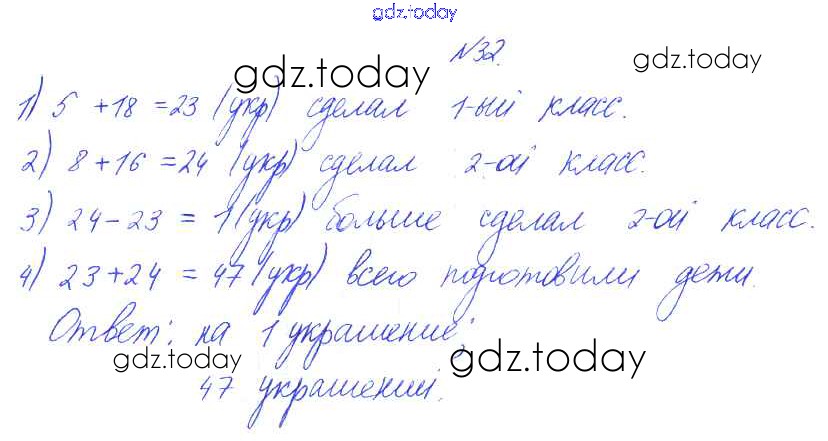 gdz.today
№32.
gdz.today
gdz.today
1) 5 + 18 = 23 (укр) сделал 1-ый класс.
2) 8 + 16 = 24 (укр) сделал 2-ой класс.
3) 24 - 23 = 1 (укр) больше сделал 2-ой класс.
4) 23 + 24 = 47 (укр) всего подготовили дети.
Ответ: на 1 украшение;
gdz.today
gdz.today
47 украшений.